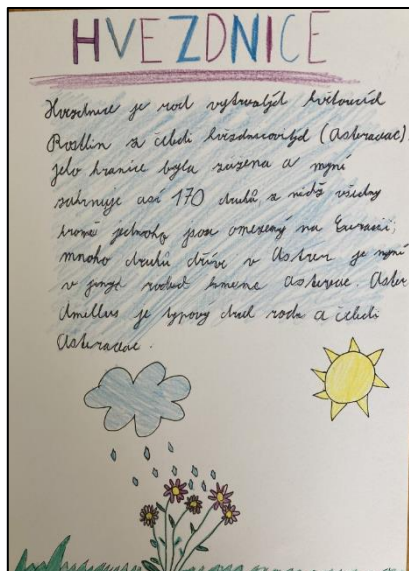 HVEZDNICE
Hvezdnice je rod vytrvalých kvetoucíd
Rostlin z čeledi hvězdnicovitýd (Asteraceae).
jeho hranice byla zúžena a nyní
zahrnuje asi 170 druhů z nidž všechny
kromě jednoho jsou omezený na Eurasii;
mnoho druhů dříve v Aster je nyní
v jinýd roded kmene Astereae. Aster
Amellus je typový druh rodu a čeledi
Asteraceae.